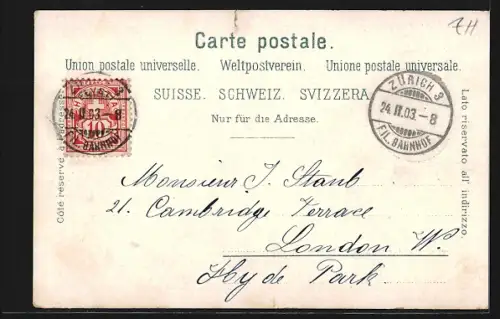 ZH
Carte postale.
Union postale universelle. Weltpostverein. Unione postale universale.
SUISSE. SCHWEIZ. SVIZZERA.
Nur für die Adresse.
Côté réservé à l'adresse.
Lato riservato all' indirizzo.
ZÜRICH 3
24.II.03.–8
FIL. BAHNHOF
ZÜRICH 3
24.II.03.–8
FIL. BAHNHOF
10
Monsieur J. Staub
21. Cambridge Terrace
London W.
Hyde Park